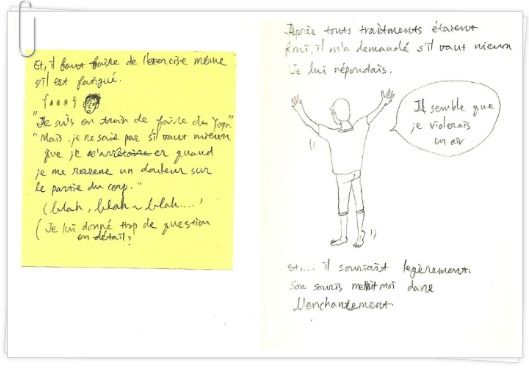 Et, il faut faire de l'exercise même
s'il est fatigué.
"Je suis en train de faire du Yoga"
"Mais je ne saie par si vaut mieux
que je m'arrêtaire er quand
je me ressene un douteur sur
le partie du corp."
(blah, blah ~ blah....'
(Je lui donné trop de question
en détail?
Après touts traitments étaient
fini, il m'a demandé s'il vaut mieux
Je lui répondais.
Il semble que
je violerais
en air
Et,... il souriait legèrement.
Son souris mettait moi dans
l'enchantement